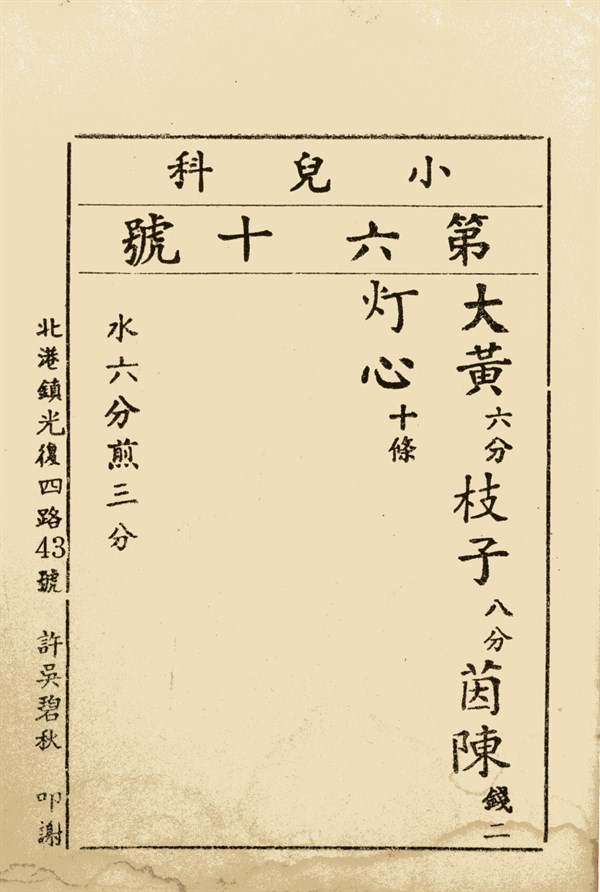 小兒科
第六十號
大黃六分枝子八分茵陳錢二
灯心十條
水六分煎三分
北港鎮光復四路43號 許吳碧秋 叩謝